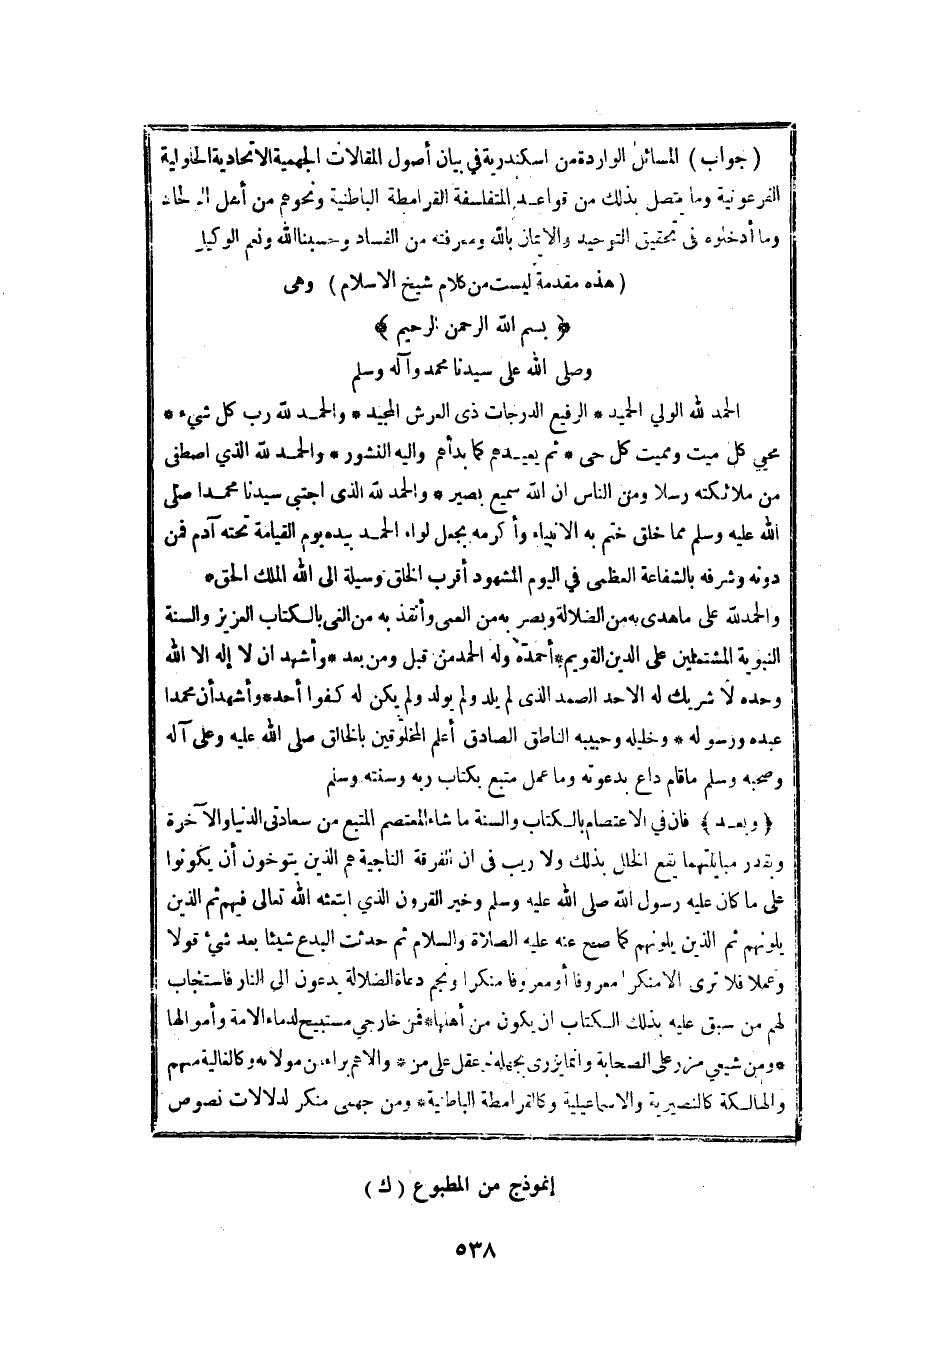 ( جواب ) المسائل الواردة من اسكندرية في بيان أصول المقالات الجهمية الاتحادية الحلولية
الفرعونية وما يتصل بذلك من قواعد المتفلسفة القرامطة الباطنية ونحوهم من أهل
وما أدخلوه فى تحقيق التوحيد والايمان بالله ومعرفته من الفساد وحسبنا الله ونعم الوكيل
( هذه مقدمة ليست من كلام شيخ الاسلام ) وهى
﴿ بسم الله الرحمن الرحيم ﴾
وصلى الله على سيدنا محمد وآله وسلم
الحمد لله الولي الحميد * الرفيع الدرجات ذى العرش المجيد * والحمد لله رب كل شيء *
محيي كل ميت ومميت كل حى * ثم يعيدهم كما بدأهم واليه النشور * والحمد لله الذي اصطفى
من ملائكته رسلا ومن الناس ان الله سميع بصير * والحمد لله الذى اجتبى سيدنا محمدا صلى
الله عليه وسلم مما خلق ختم به الانبياء وأكرمه بجعل لواء الحمد بيده يوم القيامة تحته آدم فمن
دونه وشرفه بالشفاعة العظمى في اليوم المشهود أقرب الخلق وسيلة الى الله الملك الحق *
والحمد لله على ما هدى به من الضلالة وبصر به من العمى وأنقذ به من الغى بالكتاب العزيز والسنة
النبوية المشتملين على الدين القويم * أحمده وله الحمد من قبل ومن بعد * وأشهد ان لا إله الا الله
وحده لا شريك له الاحد الصمد الذى لم يلد ولم يولد ولم يكن له كفوا أحد * وأشهد أن محمدا
عبده ورسوله * وخليله وحبيبه الناطق الصادق أعلم المخلوقين بالخالق صلى الله عليه وعلى آله
وصحبه وسلم ماقام داع بدعوته وما عمل متبع بكتاب ربه وسنته وسلم
﴿ وبعد ﴾ فان في الاعتصام بالكتاب والسنة ما شاء المعتصم المتبع من سعادتى الدنيا والآخرة
وبقدر مباينتهما يقع الخلل بذلك ولا ريب فى ان الفرقة الناجية هم الذين يتوخون أن يكونوا
على ما كان عليه رسول الله صلى الله عليه وسلم وخير القرون الذي ابتعثه الله تعالى فيهم ثم الذين
يلونهم ثم الذين يلونهم كما صح عنه عليه الصلاة والسلام ثم حدثت البدع شيئا بعد شئ قولا
وعملا فلا ترى الا منكرا معروفا أو معروفا منكرا ونجم دعاة الضلالة يدعون الى النار فاستجاب
لهم من سبق عليه بذلك الكتاب ان يكون من أهلها * فمن خارجي مستبيح لدماء الامة وأموالها
* ومن شيعي مزر على الصحابة وانما يزرى بجهله عقل على من * والاهم براء من مولاته وكالغالية منهم
والهالكة كالنصيرية والاسماعيلية وكالقرامطة الباطنية * ومن جهمى منكر لدلالات نصوص
إنموذج من المطبوع ( ك )
٥٣٨